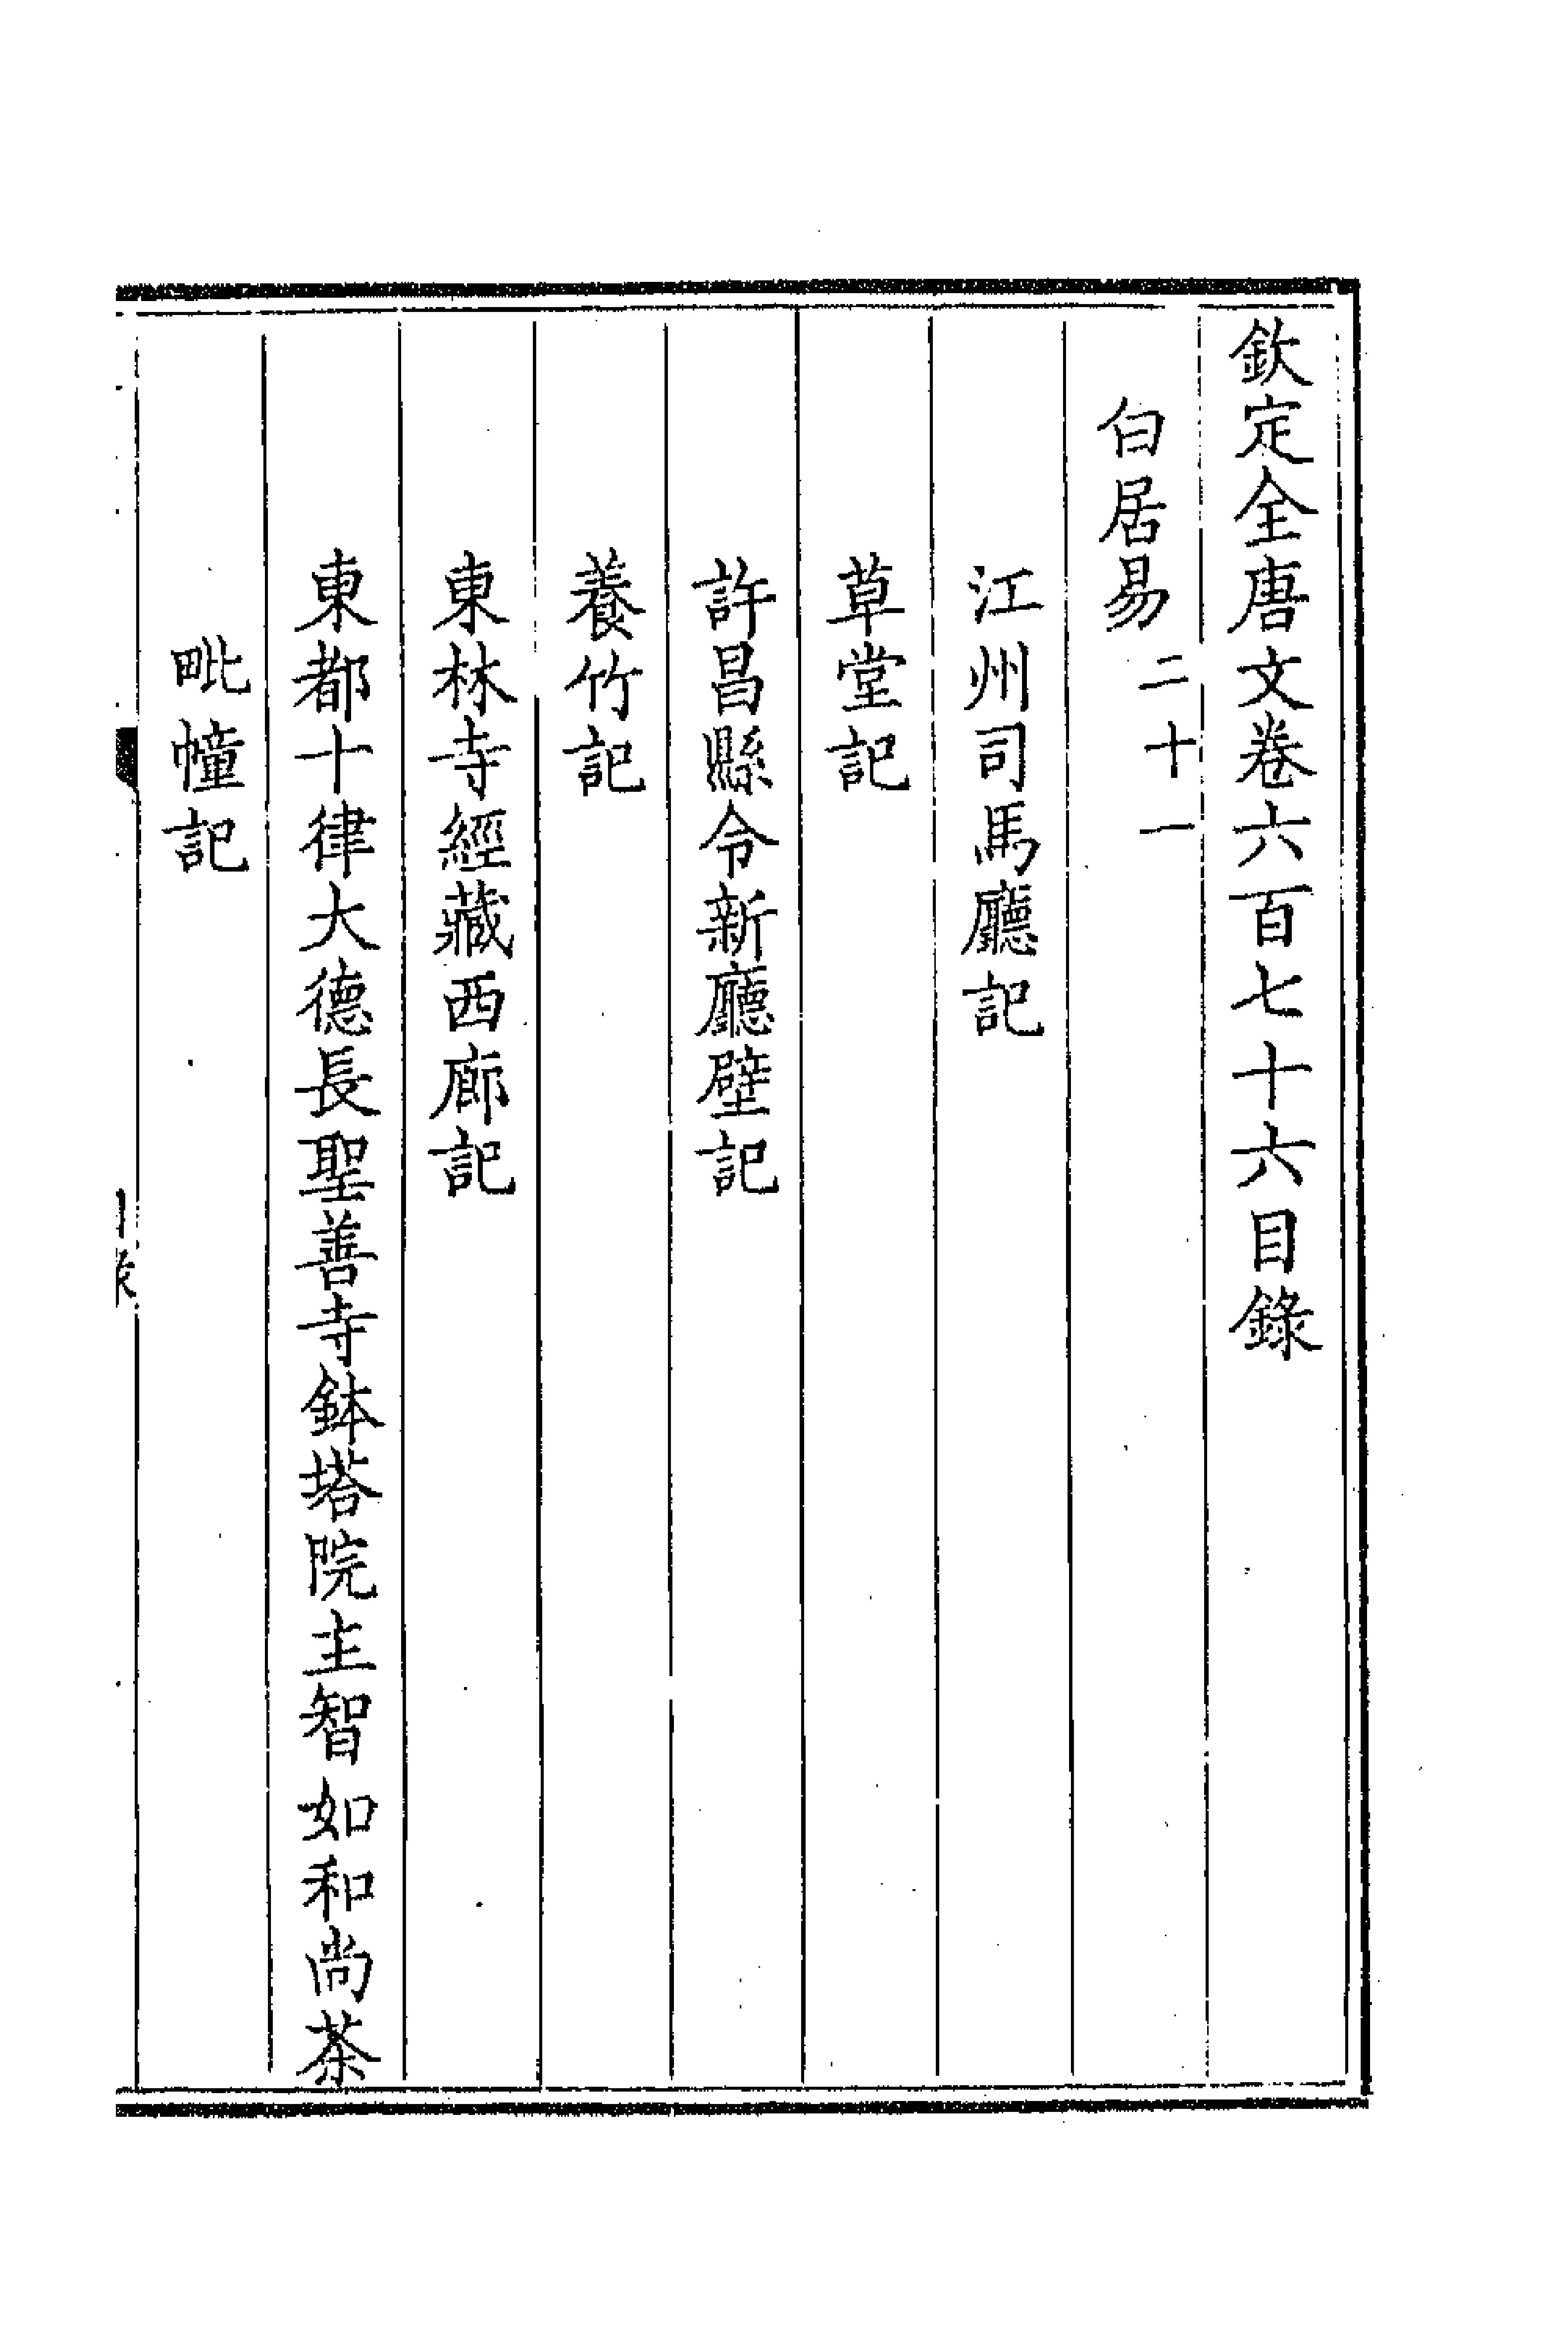 欽定全唐文卷六百七十六目錄
白居易二十一
江州司馬廳記
草堂記
許昌縣令新廳壁記
養竹記
東林寺經藏西廊記
東都十律大德長聖善寺鉢塔院主智如和尚茶
毗幢記